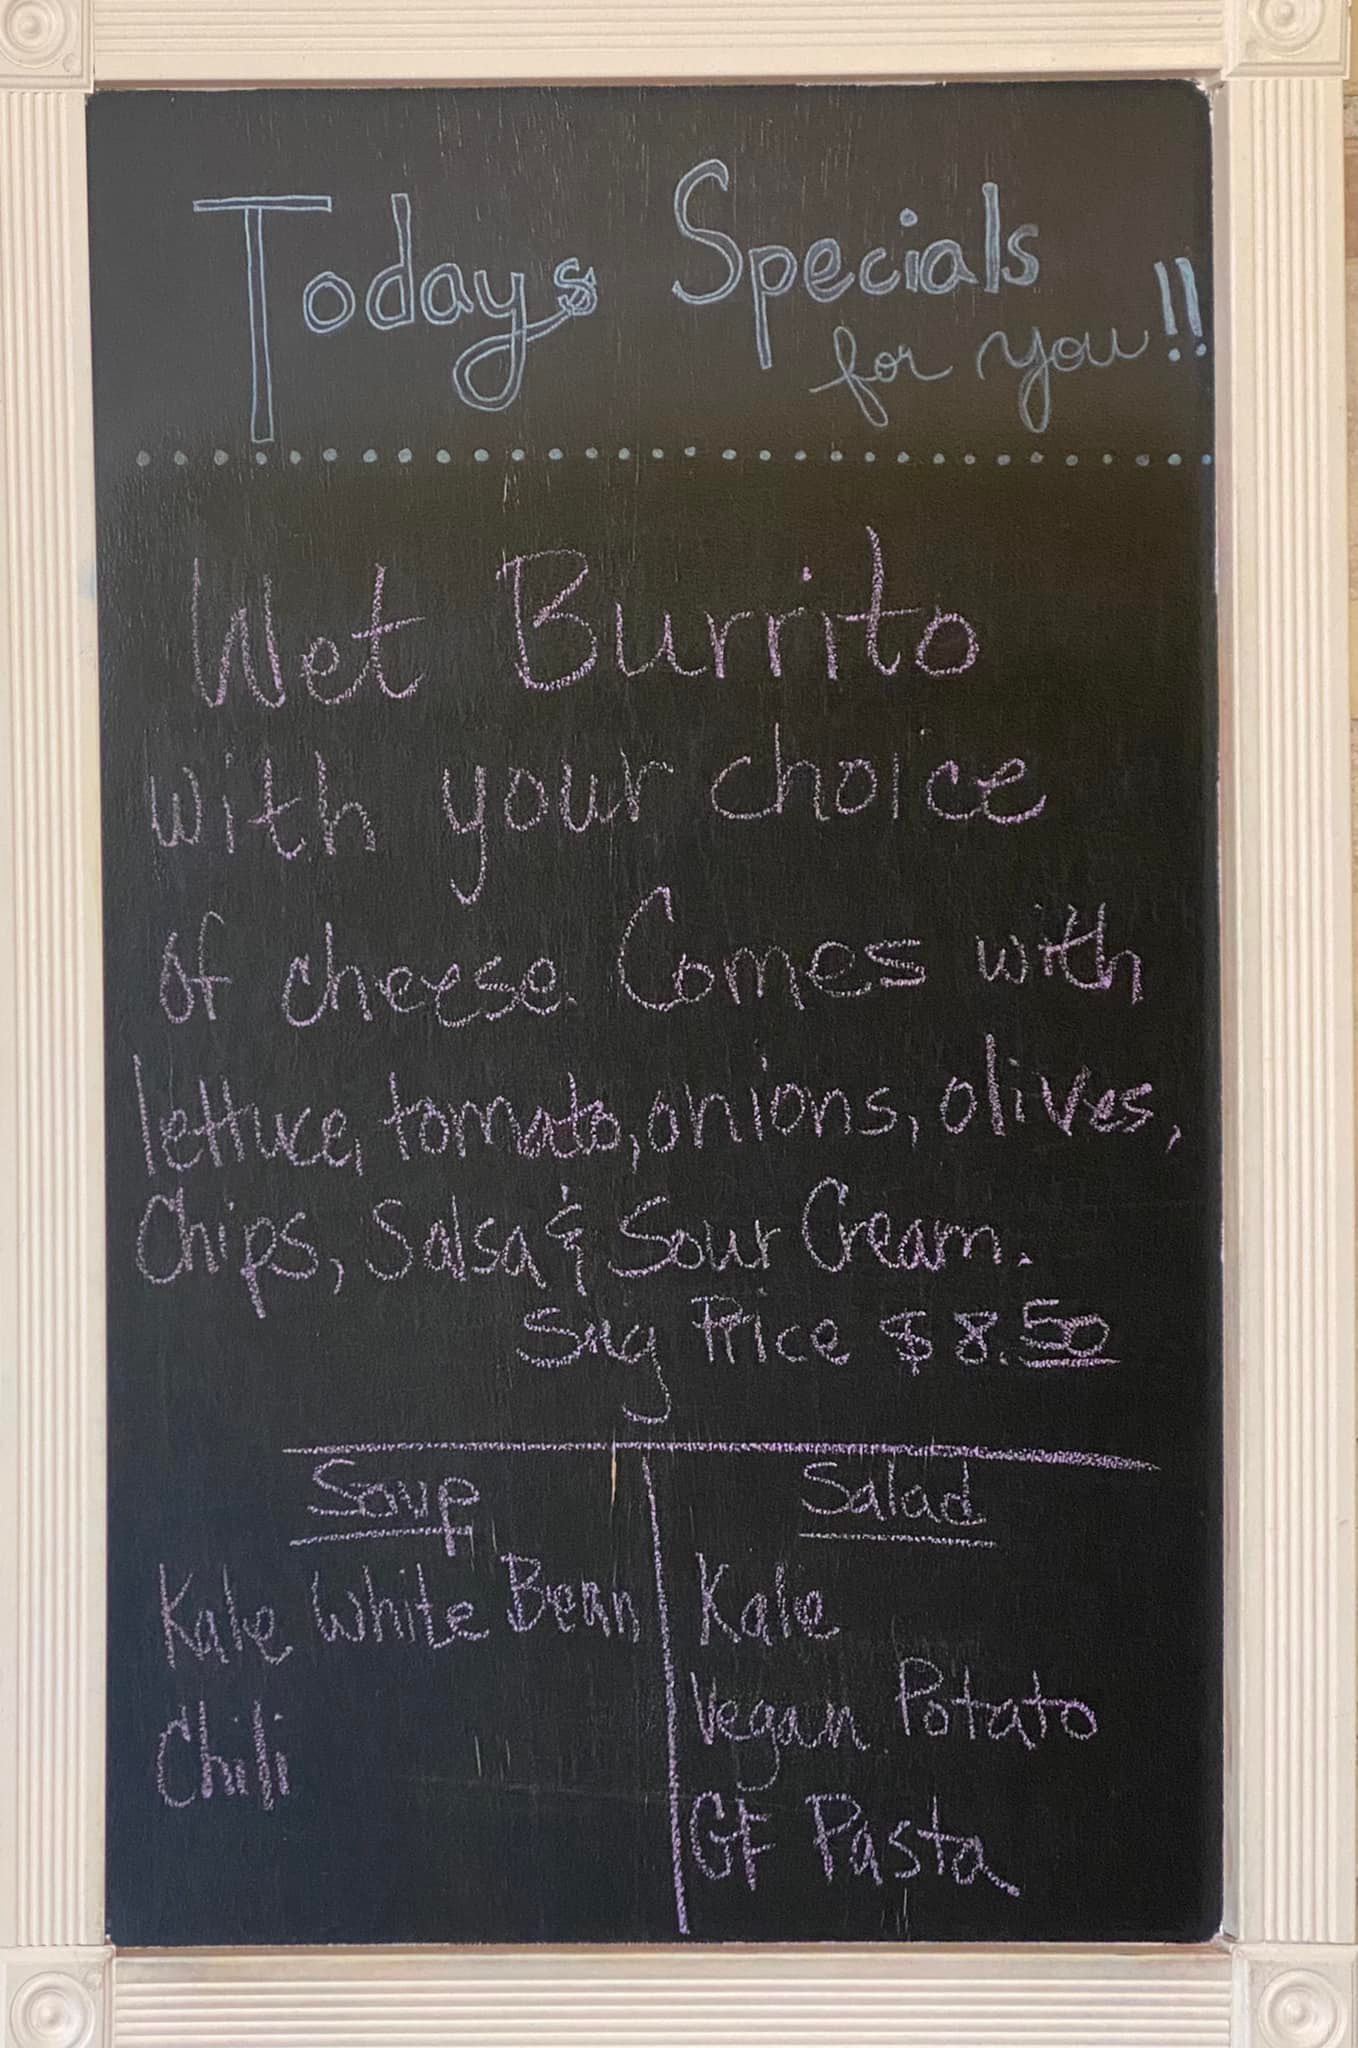 Todays Specials
for you!!
Wet Burrito
with your choice
of cheese. Comes with
lettuce, tomato, onions, olives,
Chips, Salsa & Sour Cream.
Sug Price $8.50
Soup
Kale White Bean
Chili
Salad
Kale
Vegan Potato
GF Pasta